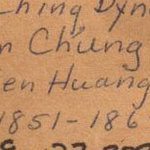 Ching Dyn
n Chung
en Huang
1851-186